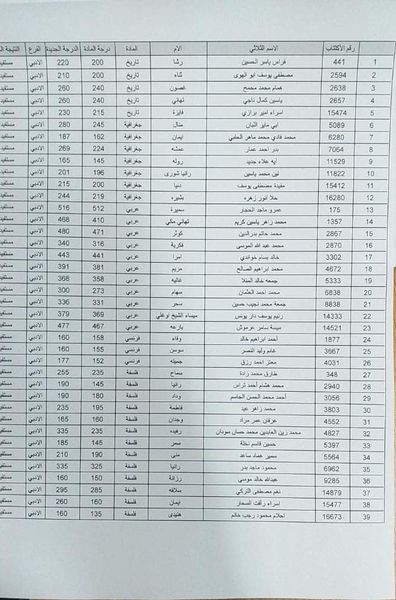 رقم الأكتتاب الاسم الثلاثي الام المادة درجة المادة الدرجة الجديدة الفرع النتيجة
1 441 فراس ياسر الحسين رشا تاريخ 200 220 الادبي مستفيد
2 2594 مصطفى يوسف ابو الهوى ثناء تاريخ 200 210 الادبي مستفيد
3 2638 همام محمد محمد غصون تاريخ 240 260 الادبي مستفيد
4 2657 ياسين كمال ناجي تهاني تاريخ 240 260 الادبي مستفيد
5 15474 اسراء امير برازي فايزة تاريخ 215 230 الادبي مستفيد
6 5089 ابي مايز اللبان منال جغرافية 240 260 الادبي مستفيد
7 6280 محمد فادي محمد ماهر ايمان جغرافية 162 187 الادبي مستفيد
8 7064 بدر احمد عمار جغرافية 224 269 الادبي مستفيد
9 11529 آيه علاء جديد روله جغرافية 145 165 الادبي مستفيد
10 11822 نين محمد ياسين رانيا شورى جغرافية 196 201 الادبي مستفيد
11 15412 مفيدة مصطفى يوسف دنيا جغرافية 200 215 الادبي مستفيد
12 16280 حلا انور زهره بشيره جغرافية 219 244 الادبي مستفيد
13 175 عمرو ماجد الحجار سميرة عربي 512 516 الادبي مستفيد
14 1357 محمد زاهر ياسين كريم تهاني مكي عربي 410 468 الادبي مستفيد
15 2867 محمد حاتم بدرالدين كوثر عربي 471 480 الادبي مستفيد
16 2870 محمد عبد الله الموسى فكرية عربي 316 340 الادبي مستفيد
17 3302 خالد بسام خوندي عربي 441 443 الادبي مستفيد
18 4672 محمد ابراهيم الصالح مريم عربي 381 391 الادبي مستفيد
19 5333 جمعه خالد غاليه عربي 358 368 الادبي مستفيد
20 6838 محمد احمد العثمان سهام عربي 273 300 الادبي مستفيد
21 8838 جمعه محمد نجيب حسين سحر عربي 331 336 الادبي مستفيد
22 14333 رنيم يوسف دار يونس ميساء الشيخ عربي 369 379 الادبي مستفيد
23 14521 ميسه سامر عربي 467 477 الادبي مستفيد
24 1877 أحمد ابراهيم خالد وفاء فرنسي 158 160 الادبي مستفيد
25 3667 غانم وليد النصر سوسن فرنسي 155 160 الادبي مستفيد
26 4031 معتز احمد رزق جميله فرنسي 152 177 الادبي مستفيد
27 348 طارق محمد زاده سماح فلسفة 235 255 الادبي مستفيد
28 2940 محمد هشام أحمد رانيا فلسفة 145 190 الادبي مستفيد
29 3056 أحمد محمد الحسن الجاسم وداد فلسفة 180 190 الادبي مستفيد
30 3803 محمد زاهر عيد فاطمة فلسفة 195 235 الادبي مستفيد
31 4552 عرفان عمر مراد وجدان فلسفة 160 165 الادبي مستفيد
32 4827 محمد زين العابدين محمد حسان سودان رفيده فلسفة 195 235 الادبي مستفيد
33 5397 حسين قاسم نخلة سمر فلسفة 145 185 الادبي مستفيد
34 5564 سمير عماد ساعد منى فلسفة 190 210 الادبي مستفيد
35 6962 محمود ماجد بدر رانيا فلسفة 325 335 الادبي مستفيد
36 9285 عبدالله خالد موسى رزانة فلسفة 150 160 الادبي مستفيد
37 14879 نغم مصطفى التركي سلافه فلسفة 285 295 الادبي مستفيد
38 15477 اسراء رأفت السحار ايمان فلسفة 260 260 الادبي مستفيد
39 16673 احلام محمود رجب خانم هنيدى فلسفة 135 160 الادبي مستفيد